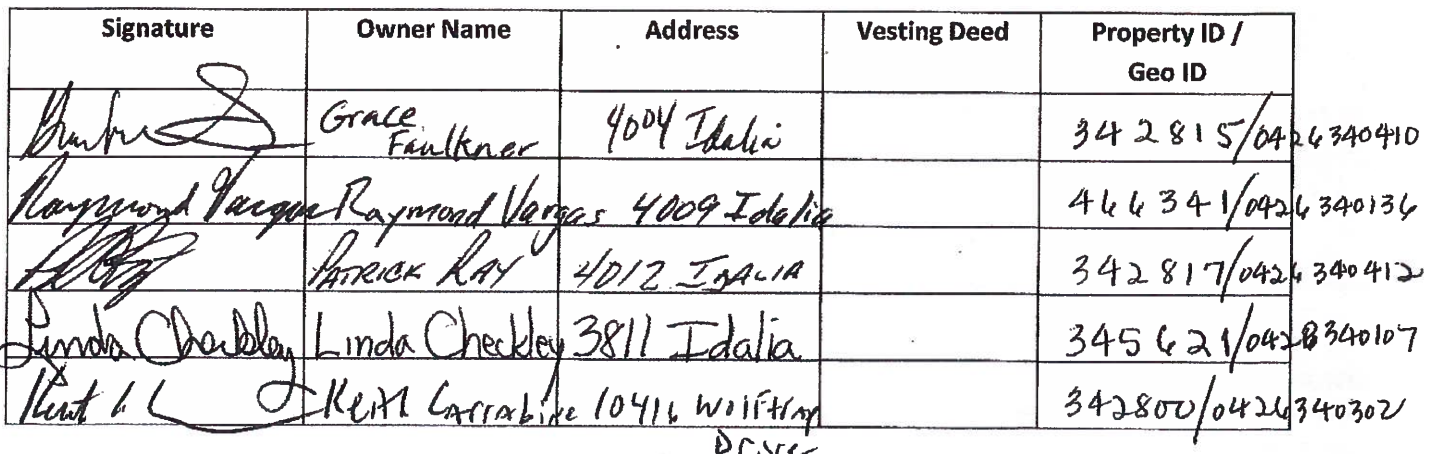 Signature Owner Name Address Vesting Deed Property ID /
Geo ID
Grace Faulkner 4004 Idalia 342815/0426340410
Raymond Vargas Raymond Vargas 4009 Idalia 466341/0426340136
Patrick Ray 4012 Idalia 342817/0426340412
Linda Checkley Linda Checkley 3811 Idalia 345621/0428340107
Keith 10416 Wolftrap 342800/0426340302
Drive